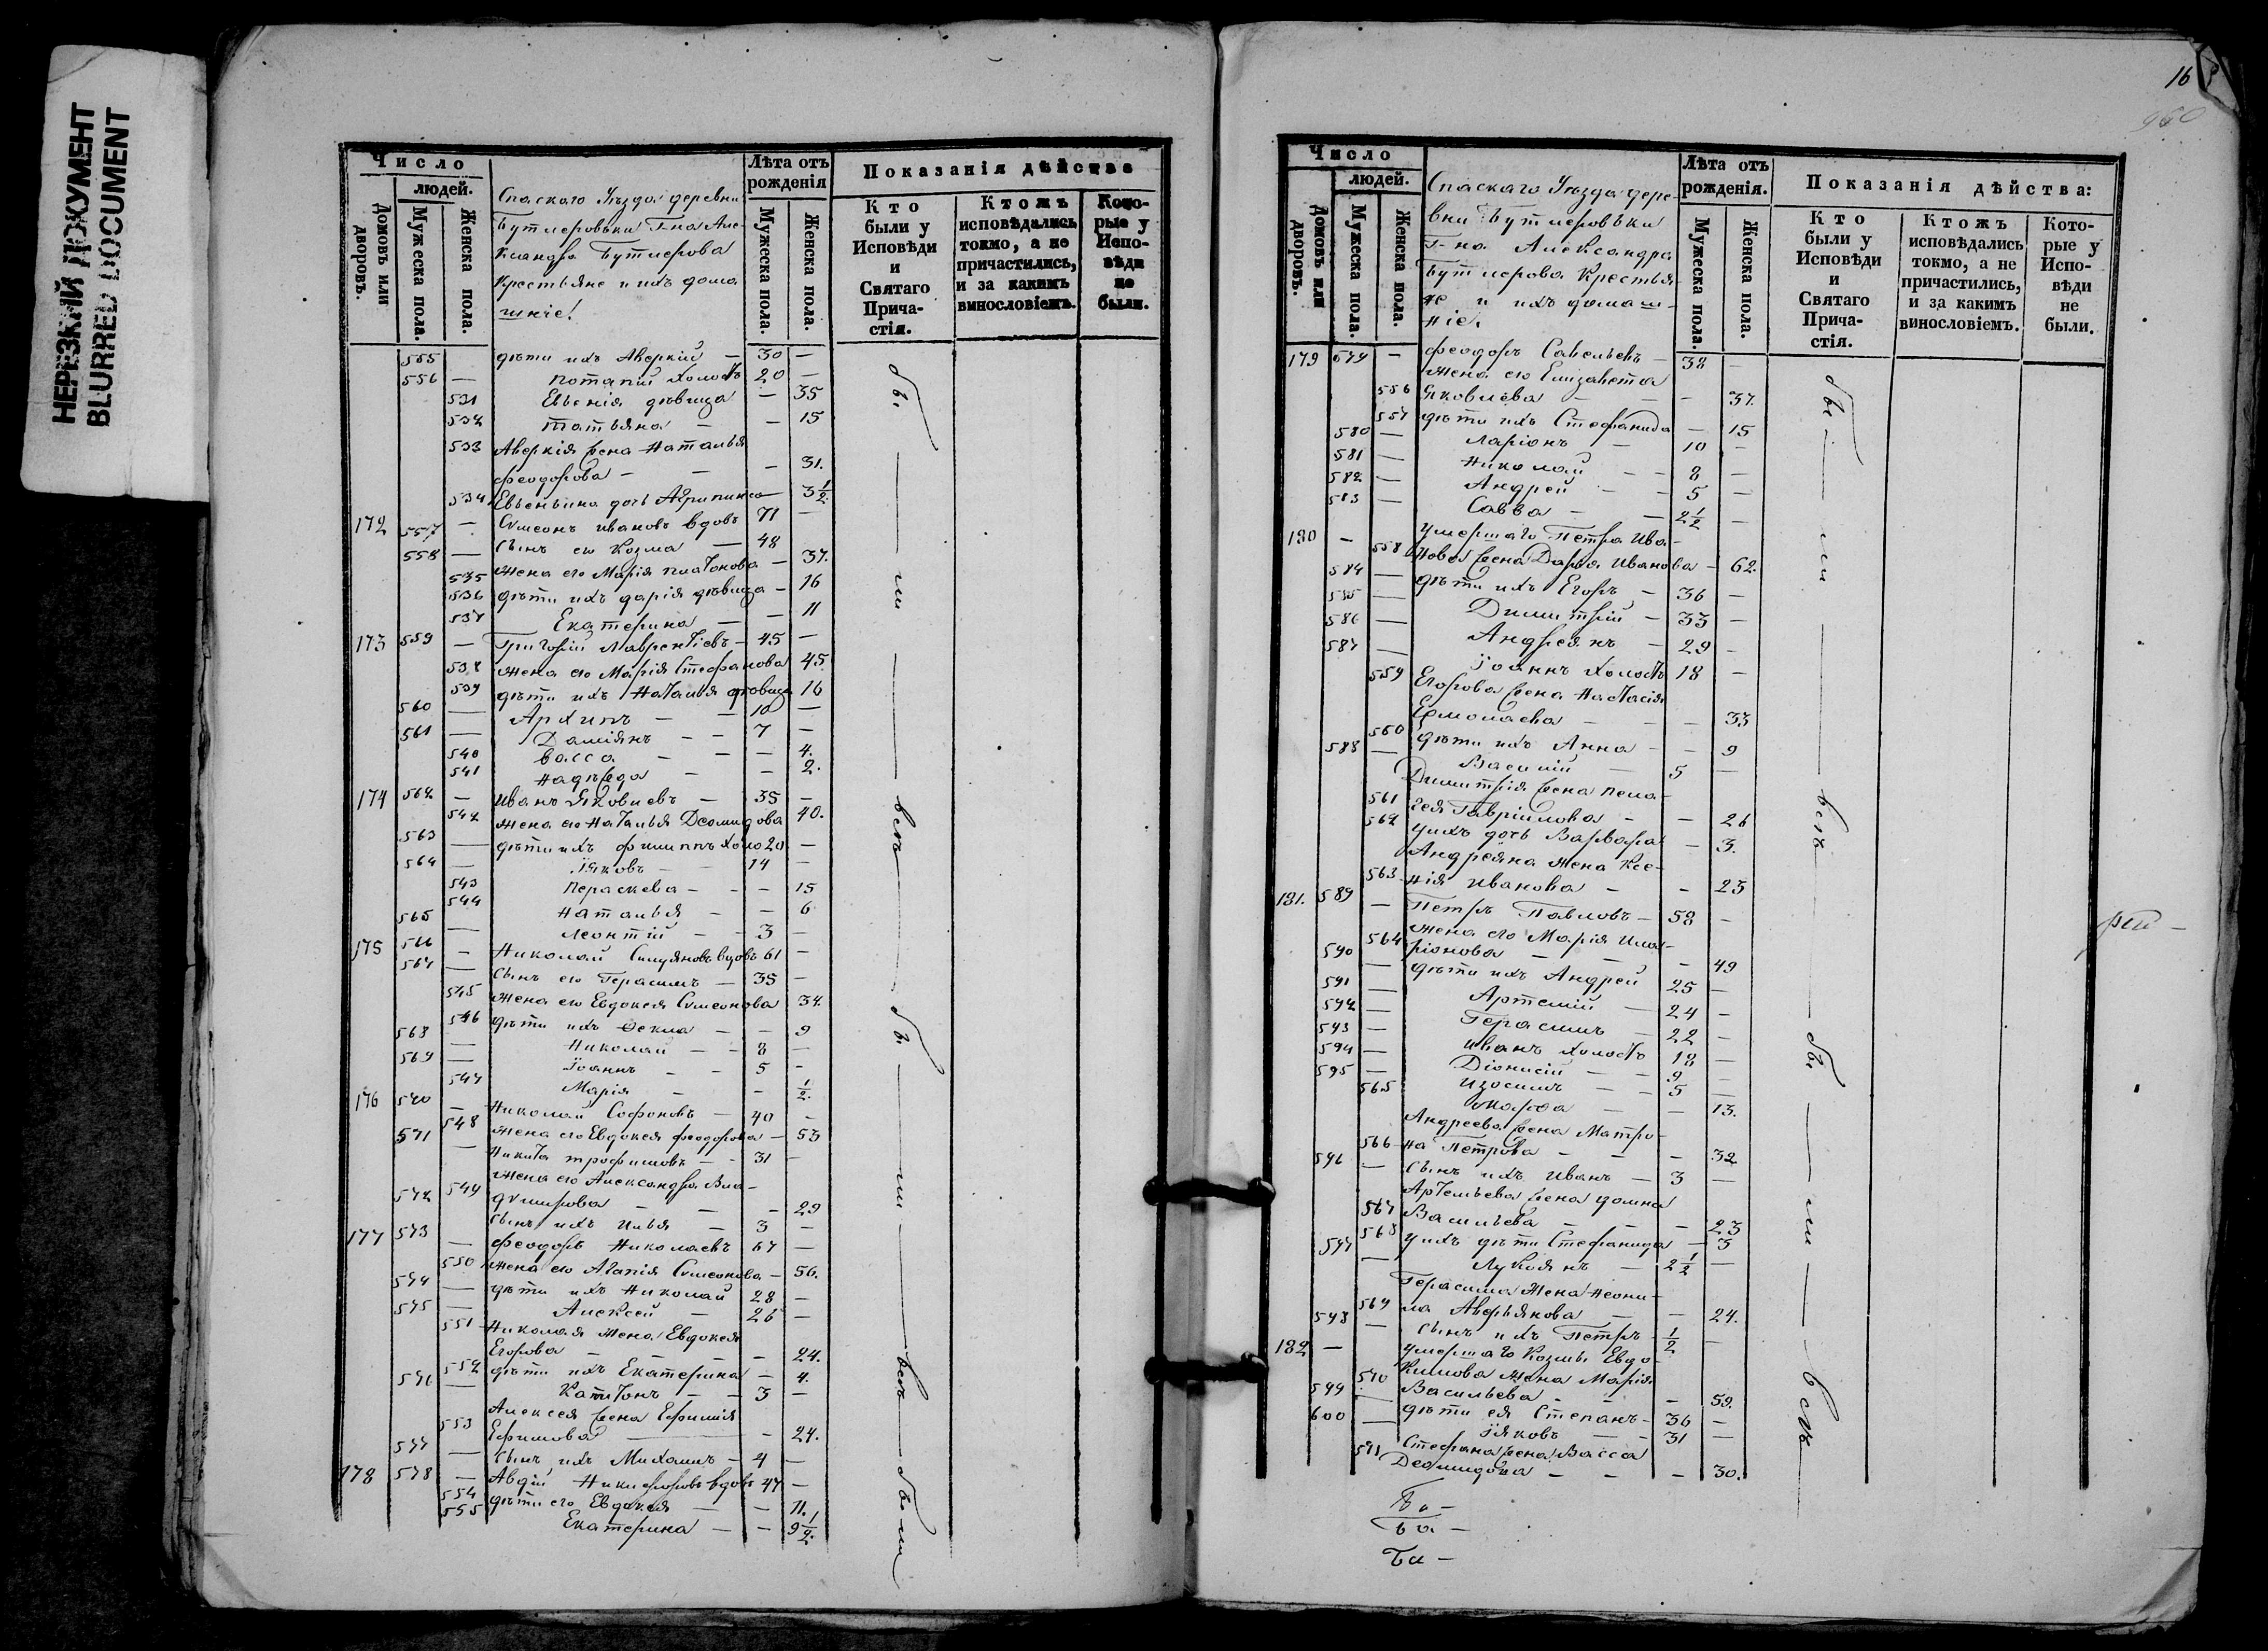 НЕРЕЗКИЙ ДОКУМЕНТ
BLURRED DOCUMENT
Число
людей.
Домовъ или дворовъ.
Мужеска пола.
Женска пола.
Спаскаго Уѣзда деревни
Бутлеровки Г-на Але-
ксандра Бутлерова
Крестьяне и ихъ дома
шніе.
Лѣта отъ рожденія
Мужеска пола.
Женска пола.
Показанія дѣйства
Кто были у Исповѣди и Святаго Прича-стія.
Ктожъ исповѣдались токмо, а не причастились, и за какимъ винословіемъ.
Кото-рые у Испо-вѣди не были.
555 дѣти ихъ Аверкій — 30 —
556 — Потапій холостъ 20 —
531 Евгенія дѣвица — 35
532 Татьяна — — 15
533 Аверкія жена Наталья
Феодорова — — — 31.
534 дочь Агрипина — 3 1/2
172 557 — Симеонъ Ивановъ вдовъ 71 —
558 — Сынъ его Козма — 48
535 Жена его Марія Платонова — 37.
536 дѣти ихъ Дарія дѣвица — 16
537 Екатерина — — 11
173 559 — Григорій Лаврентіевъ — 45 —
538 Жена его Марія Стефанова 45
539 дѣти ихъ Наталья дѣвица 16
560 — Архипъ — — 10 —
561 — Даміянъ — — 7 —
540 Васса — — 4.
541 Надежда — — 2.
174 562 — Иванъ Яковлевъ — 35 —
542 Жена его Наталья Деомидова 40.
563 — дѣти ихъ Филиппъ холо 20 —
564 — Іяковъ — 14 —
543 Параскева — — — 15
544 Наталья — — 6
565 — Леонтій — — 3 —
175 566 — Николай вдовъ 61 —
567 — Сынъ его Герасимъ — 35 —
545 Жена его Евдокея Симеонова 34.
546 дѣти ихъ Фекла — — 9
568 — Николай — — 8 —
569 — Іоаннъ — — 5 —
547 Марія — — 1/2.
176 570 — Николай Софоновъ — 40 —
548 Жена его Евдокея Феодорова — 53
571 — Никита Трофимовъ — — 31 —
Жена его Александра Вла-
549 димирова — — — 29
572 — Сынъ ихъ Илья — 3 —
177 573 — Феодоръ Николаевъ 67 —
550 Жена его Агапія Симеонова — 56.
574 — дѣти ихъ Николай 28 —
575 — Алексей — 26 —
551 Николая жена Евдокея
Егорова — — — 24.
552 дѣти ихъ Екатерина — 4.
576 — Капитонъ — — 3 —
Алексея жена Ефимія
553 Ефимова — — 24.
577 — Сынъ ихъ Михаилъ — 4 —
178 578 — Авдій Никифоровъ вдовъ 47 —
554 дѣти его Евдокея — — 11.
555 Екатерина — — 9 1/2.
бы — ли — всѣ — бы — ли — всѣ — были
16
960
Число
людей.
Домовъ или дворовъ.
Мужеска пола.
Женска пола.
Спаскаго Уѣзда дере-
вни Бутлеровки
Г-на Александра
Бутлерова Крестья
не и ихъ домаш-
ніе.
Лѣта отъ рожденія.
Мужеска пола.
Женска пола.
Показанія дѣйства:
Кто были у Исповѣди и Святаго Прича-стія.
Ктожъ исповѣдались токмо, а не причастились, и за какимъ винословіемъ.
Кото-рые у Испо-вѣди не были.
179 579 — Феодоръ Савельевъ — 38 —
Жена его Елизавета
556 Яковлева — — — 37.
557 дѣти ихъ Стефанида — 15
580 — Ларіонъ — 10 —
581 — Николай — — 8 —
582 — Андрей — — 5 —
583 — Савва — — 2 1/2 —
180 — Умершаго Петра Ива-
558 нова жена Дарья Иванова — 62.
584 — дѣти ихъ Егоръ — 36 —
585 — Димитрій — 33 —
586 — Андреянъ — 29 —
587 — Іоаннъ холостъ 18 —
559 Егорова жена Настасія
Ермолаева — — — 33
560 дѣти ихъ Анна — — 9
588 — Василій — 5 —
Димитрія жена Пела-
561 гея Гавріилова — — 26
562 у ихъ дочь Варвара — 3.
Андреяна жена Ксе-
563 нія Иванова — — 23
181. 589 — Петръ Павловъ — 58 —
Жена его Марія Ила-
564 ріонова — — — 49
590 — дѣти ихъ Андрей 25 —
591 — Артемій — 24 —
592 — Герасимъ — 22 —
593 — Иванъ холостъ 18 —
594 — Діонисій — — 9 —
595 — Изосимъ — — 5 —
565 Марфа — — 13.
Андреева жена Матро-
566 на Петрова — — — 32
596 — Сынъ ихъ Иванъ — 3 —
Артемьева жена Домна
567 Васильева — — — 23
568 у ихъ дѣти Стефанида — 5
597 — Лукіянъ — 2 1/2 —
Герасима жена Неони-
569 ла Аверьянова — — 24.
598 — Сынъ ихъ Петръ 1/2 —
182 — Умершаго Козмы Евдо-
кимова жена Марія
570 Васильева — — — 59.
599 — дѣти ея Степанъ — 36 —
600 — Іяковъ — — 31 —
571 Стефана жена Васса
Деомидова — — — 30.
бы — ли — всѣ — бы — ли — всѣ